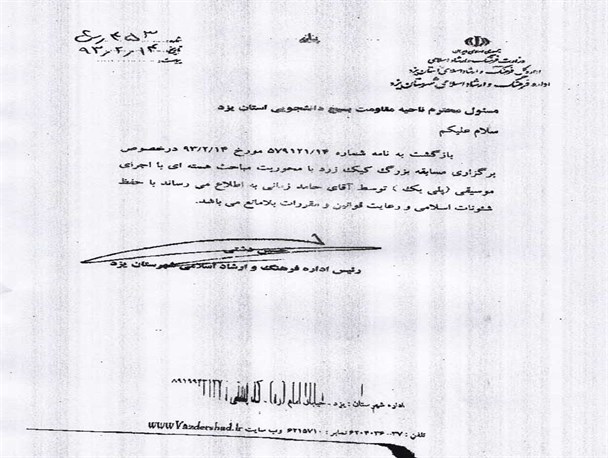 بسمه تعالی
جمهوری اسلامی ایران
وزارت فرهنگ و ارشاد اسلامی
اداره کل فرهنگ و ارشاد اسلامی استان یزد
اداره فرهنگ و ارشاد اسلامی شهرستان یزد
تاریخ: ۹۳/۲/۱۴
پیوست:
مسئول محترم ناحیه مقاومت بسیج دانشجویی استان یزد
سلام علیکم
بازگشت به نامه شماره ۵۷۹۱۲۱/۱۴ مورخ ۹۳/۲/۱۴ درخصوص
برگزاری مسابقه بزرگ کیک زرد با محوریت مباحث هسته ای با اجرای
موسیقی (پلی بک) توسط آقای حامد زمانی به اطلاع می رساند با حفظ
شئونات اسلامی و رعایت قوانین و مقررات بلامانع می باشد.
رئیس اداره فرهنگ و ارشاد اسلامی شهرستان یزد
اداره شهرستان: یزد - خیابان امام (ره) -
تلفن: ۳۷-۶۲۰۴۰۳۶ نمابر: ۶۲۱۵۷۱۰ وب سایت www.Yazdershad.ir